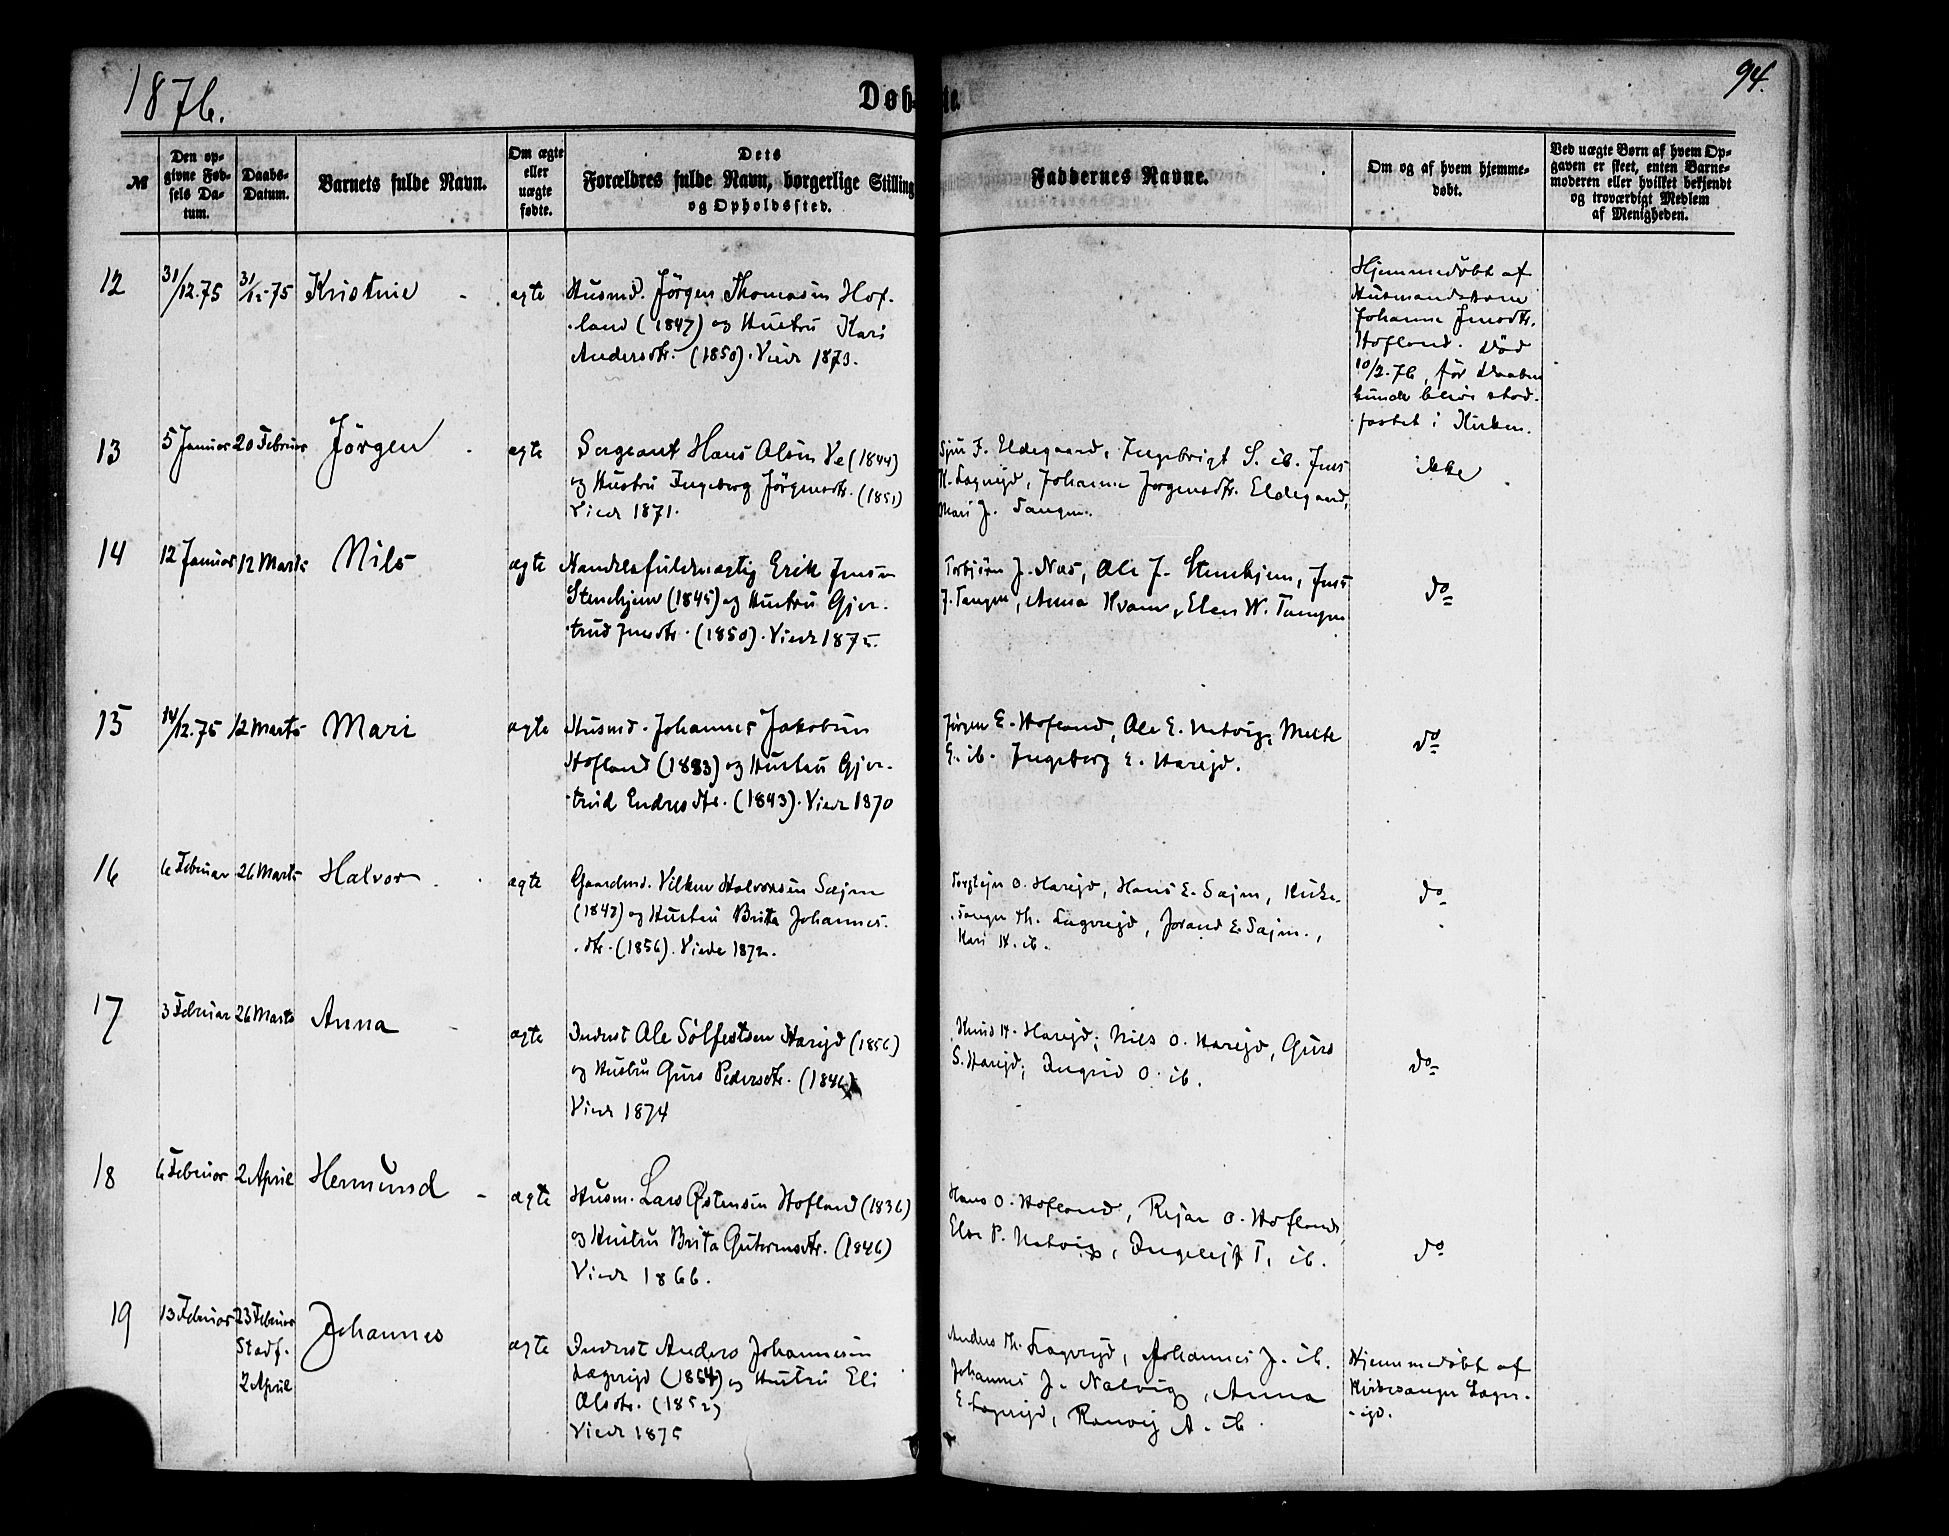 1876.
Døbte.
94.
№
Den op-
givne Fød-
sels Da-
tum.
Daabs-
Datum.
Barnets fulde Navn.
Om ægte
eller
uægte
fødte.
Dets
Forældres fulde Navn, borgerlige Stilling
og Opholdssted.
Faddernes Navne.
Om og af hvem hjemme-
døbt.
Ved uægte Børn af hvem Op-
gaven er skeet, enten Barne-
moderen eller hvilket bekjendt
og troværdigt Medlem
af Menigheden.
12
31/12.75
31/12-75
Kristine
ægte
Husmd. Jörgen Thomasen Hof-
land (1847) og Hustru Kari
Andersdtr. (1850). Viede 1873.
Hjemmedöbt af
Husmandskone
Johanne
Hofland. Död
10/2.76, för Daaben
kunde blive stad-
fæstet i Kirken.
13
5 Januar
20 Februar
Jörgen
ægte
Sergeant Hans Olsen Ve (1844)
og Hustru Ingeborg Jörgensdtr. (1851)
Viede 1871.
Sjur J. Eldegaard, Ingebrigt S. ib. Jens
H. Lægreid, Johanne Jörgensdtr. Eldegaard,
Mari J. Tangen.
ikke
14
12 Januar
12 Marts
Nils
ægte
Handelsfuldmægtig Erik Jensen
Stenehjem (1845) og Hustru Gjer-
trud Jensdtr. (1850). Viede 1875.
Torbjörn J. Næs, Ole J. Stenehjem, Jens
J. Tangen, Anna Kvam, Elen W. Tangen
do
15
14/12.75
12 Marts
Mari
ægte
Husmd. Johannes Jakobsen
Hofland (1833) og Hustru Gjer-
trud Endresdtr. (1843). Viede 1870
Jörgen E. Hofland, Ole E. Natvig, Mette
G. ib. Ingeborg E. Hareid.
do
16
6 Februar
26 Marts
Halvor
ægte
Gaardmd. Vilken Halvorsen Sajm
(1847) og Hustru Brita Johannes-
dtr. (1856). Viede 1872.
Torstejn O. Harejd, Hans E. Sajm, Kirke-
sanger Th. Lægrejd, Jorand E. Sajm,
Kari H. ib.
do
17
3 Februar
26 Marts
Anna
ægte
Inderst Ole Sölfestsen Harejd (1856)
og Hustru Guro Pedersdtr. (1846)
Viede 1874
Knud H. Harejd, Nils O. Harejd, Guro
S. Harejd, Ingrid O. ib.
do
18
6 Februar
2 April
Hermund
ægte
Husm. Lars Östensen Hofland (1836)
og Hustru Brita Gutormsdtr. (1846)
Viede 1866.
Hans O. Hofland, Rejar O. Hofland,
Else P. Natvig, Ingelejf T. ib.
do
19
13 Februar
23 Februar
Stadf.
2 April
Johannes
ægte
Inderst Anders Johannesen
Lægrejd (1854) og Hustru Eli
Olsdtr. (1852)
Viede 1875
Anders Th. Lægrejd, Johannes J. ib.
Johannes J. Natvig, Anna
E. Lægrejd, Ranveig A. ib
Hjemmedöbt af
Kirkesanger Lægr-
ejd.